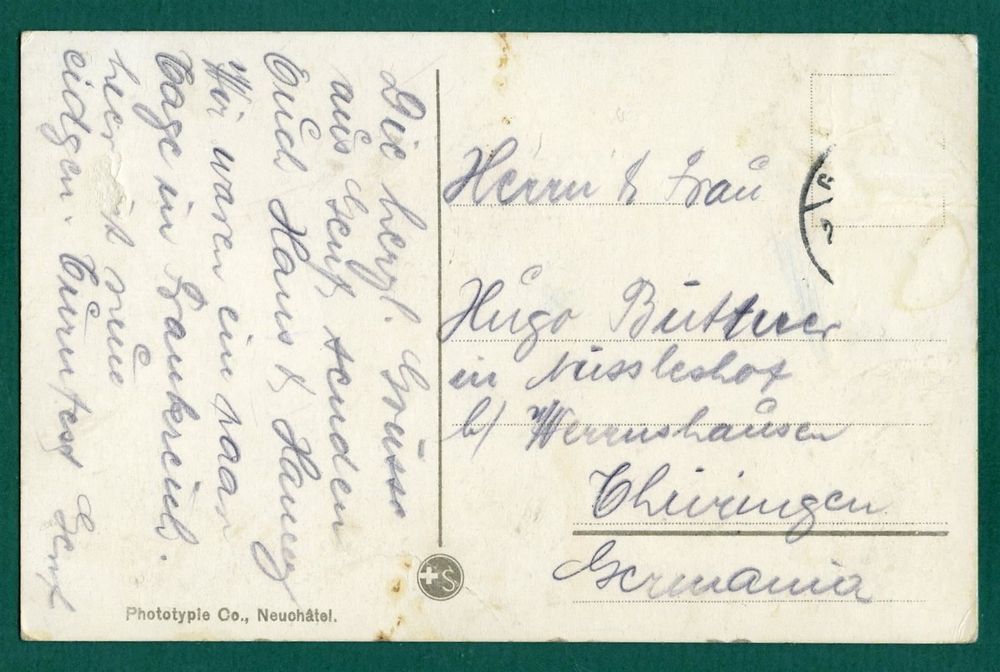 Die herzl. Grüsse
aus Genf, senden
Euch Hans &
Wir waren ein paar
Tage in Frankreich.
hier ist nun
eidgen. Turnfest Genf
Herrn & Frau
Hugo Büttner
in Nüssleshof
b/ Wernshausen
Thüringen
Germania
Phototypie Co., Neuchâtel.
S